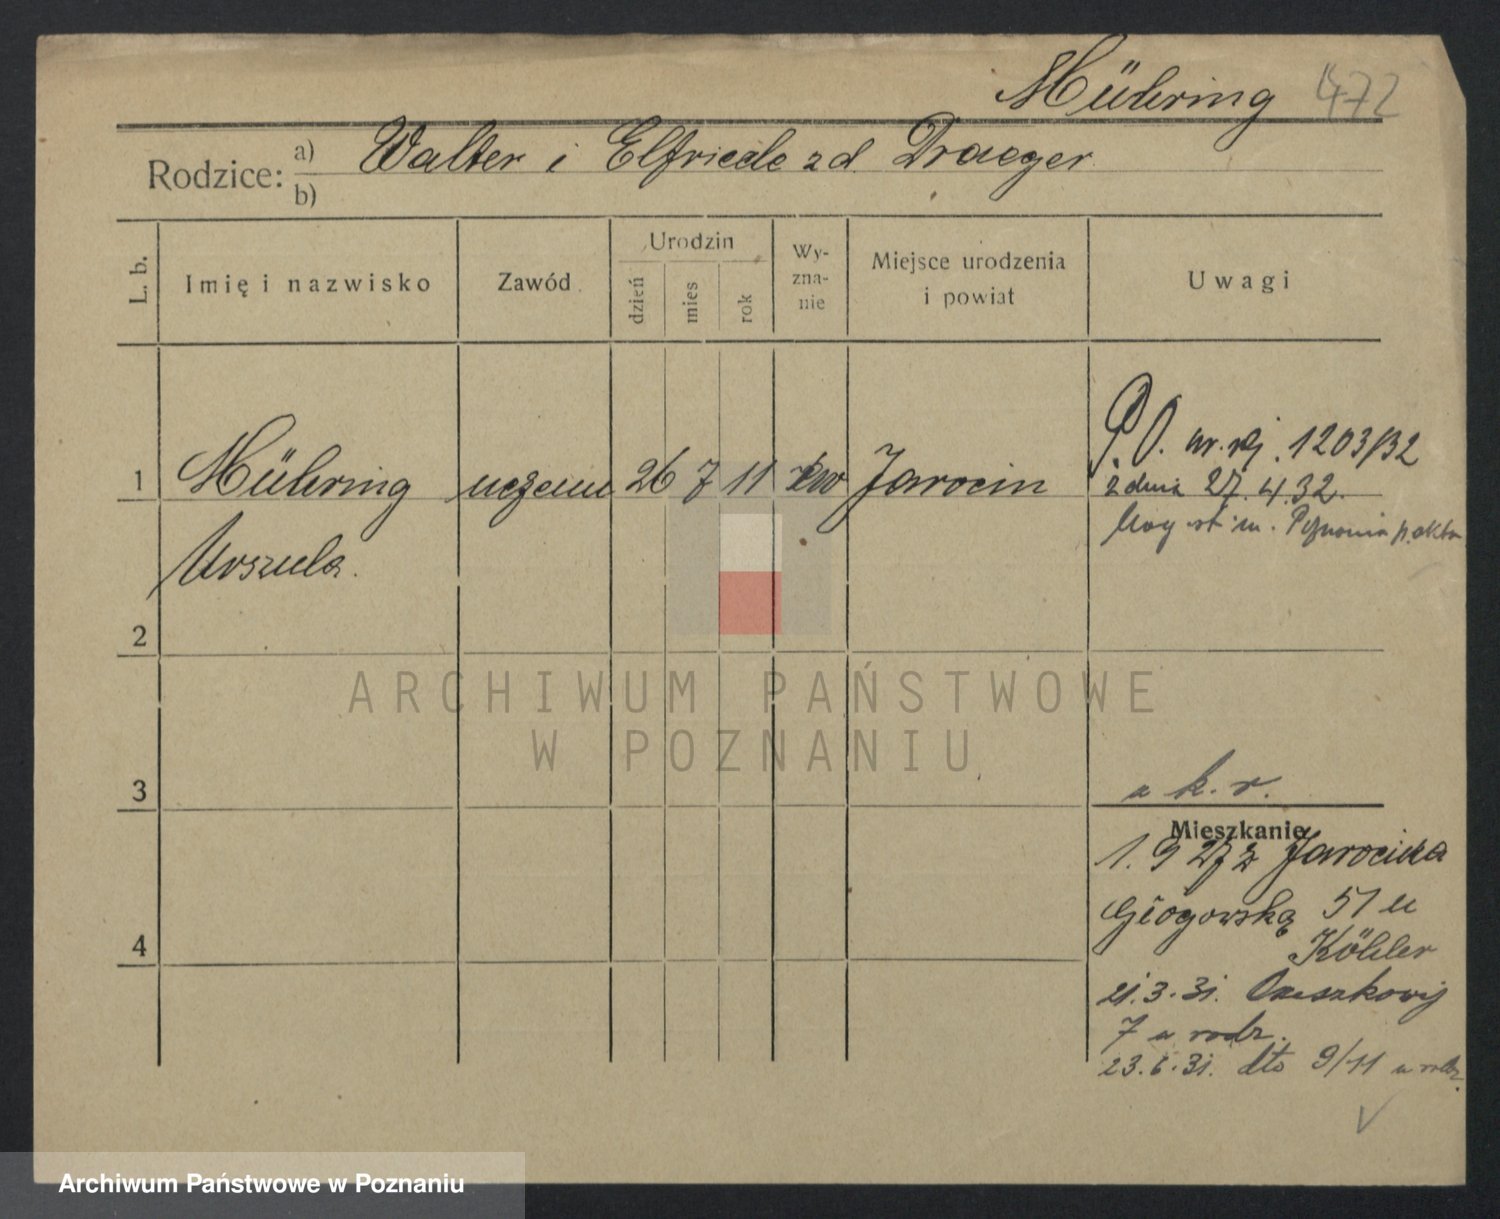 Mühring 472
Rodzice: a) Walter i Elfriede zd. Draeger
b)
L. b. Imię i nazwisko Zawód Urodzin dzień mies rok Wy-zna-nie Miejsce urodzenia i powiat Uwagi
P.O. nr. rej. 1203/32
1 Mühring 26 7 11 ew Jarocin z dnia 27.4.32.
st. m. Poznania p. akta
Urszula.
2
ARCHIWUM PAŃSTWOWE
W POZNANIU
3 k. r.
Mieszkanie
1. 9 27 z Jarocina
4 Głogowska 51 u
Köhler
21.3.31. Orzeszkowej
7 u rodz.
23.6.31. dto 9/11 u rodz.
Archiwum Państwowe w Poznaniu